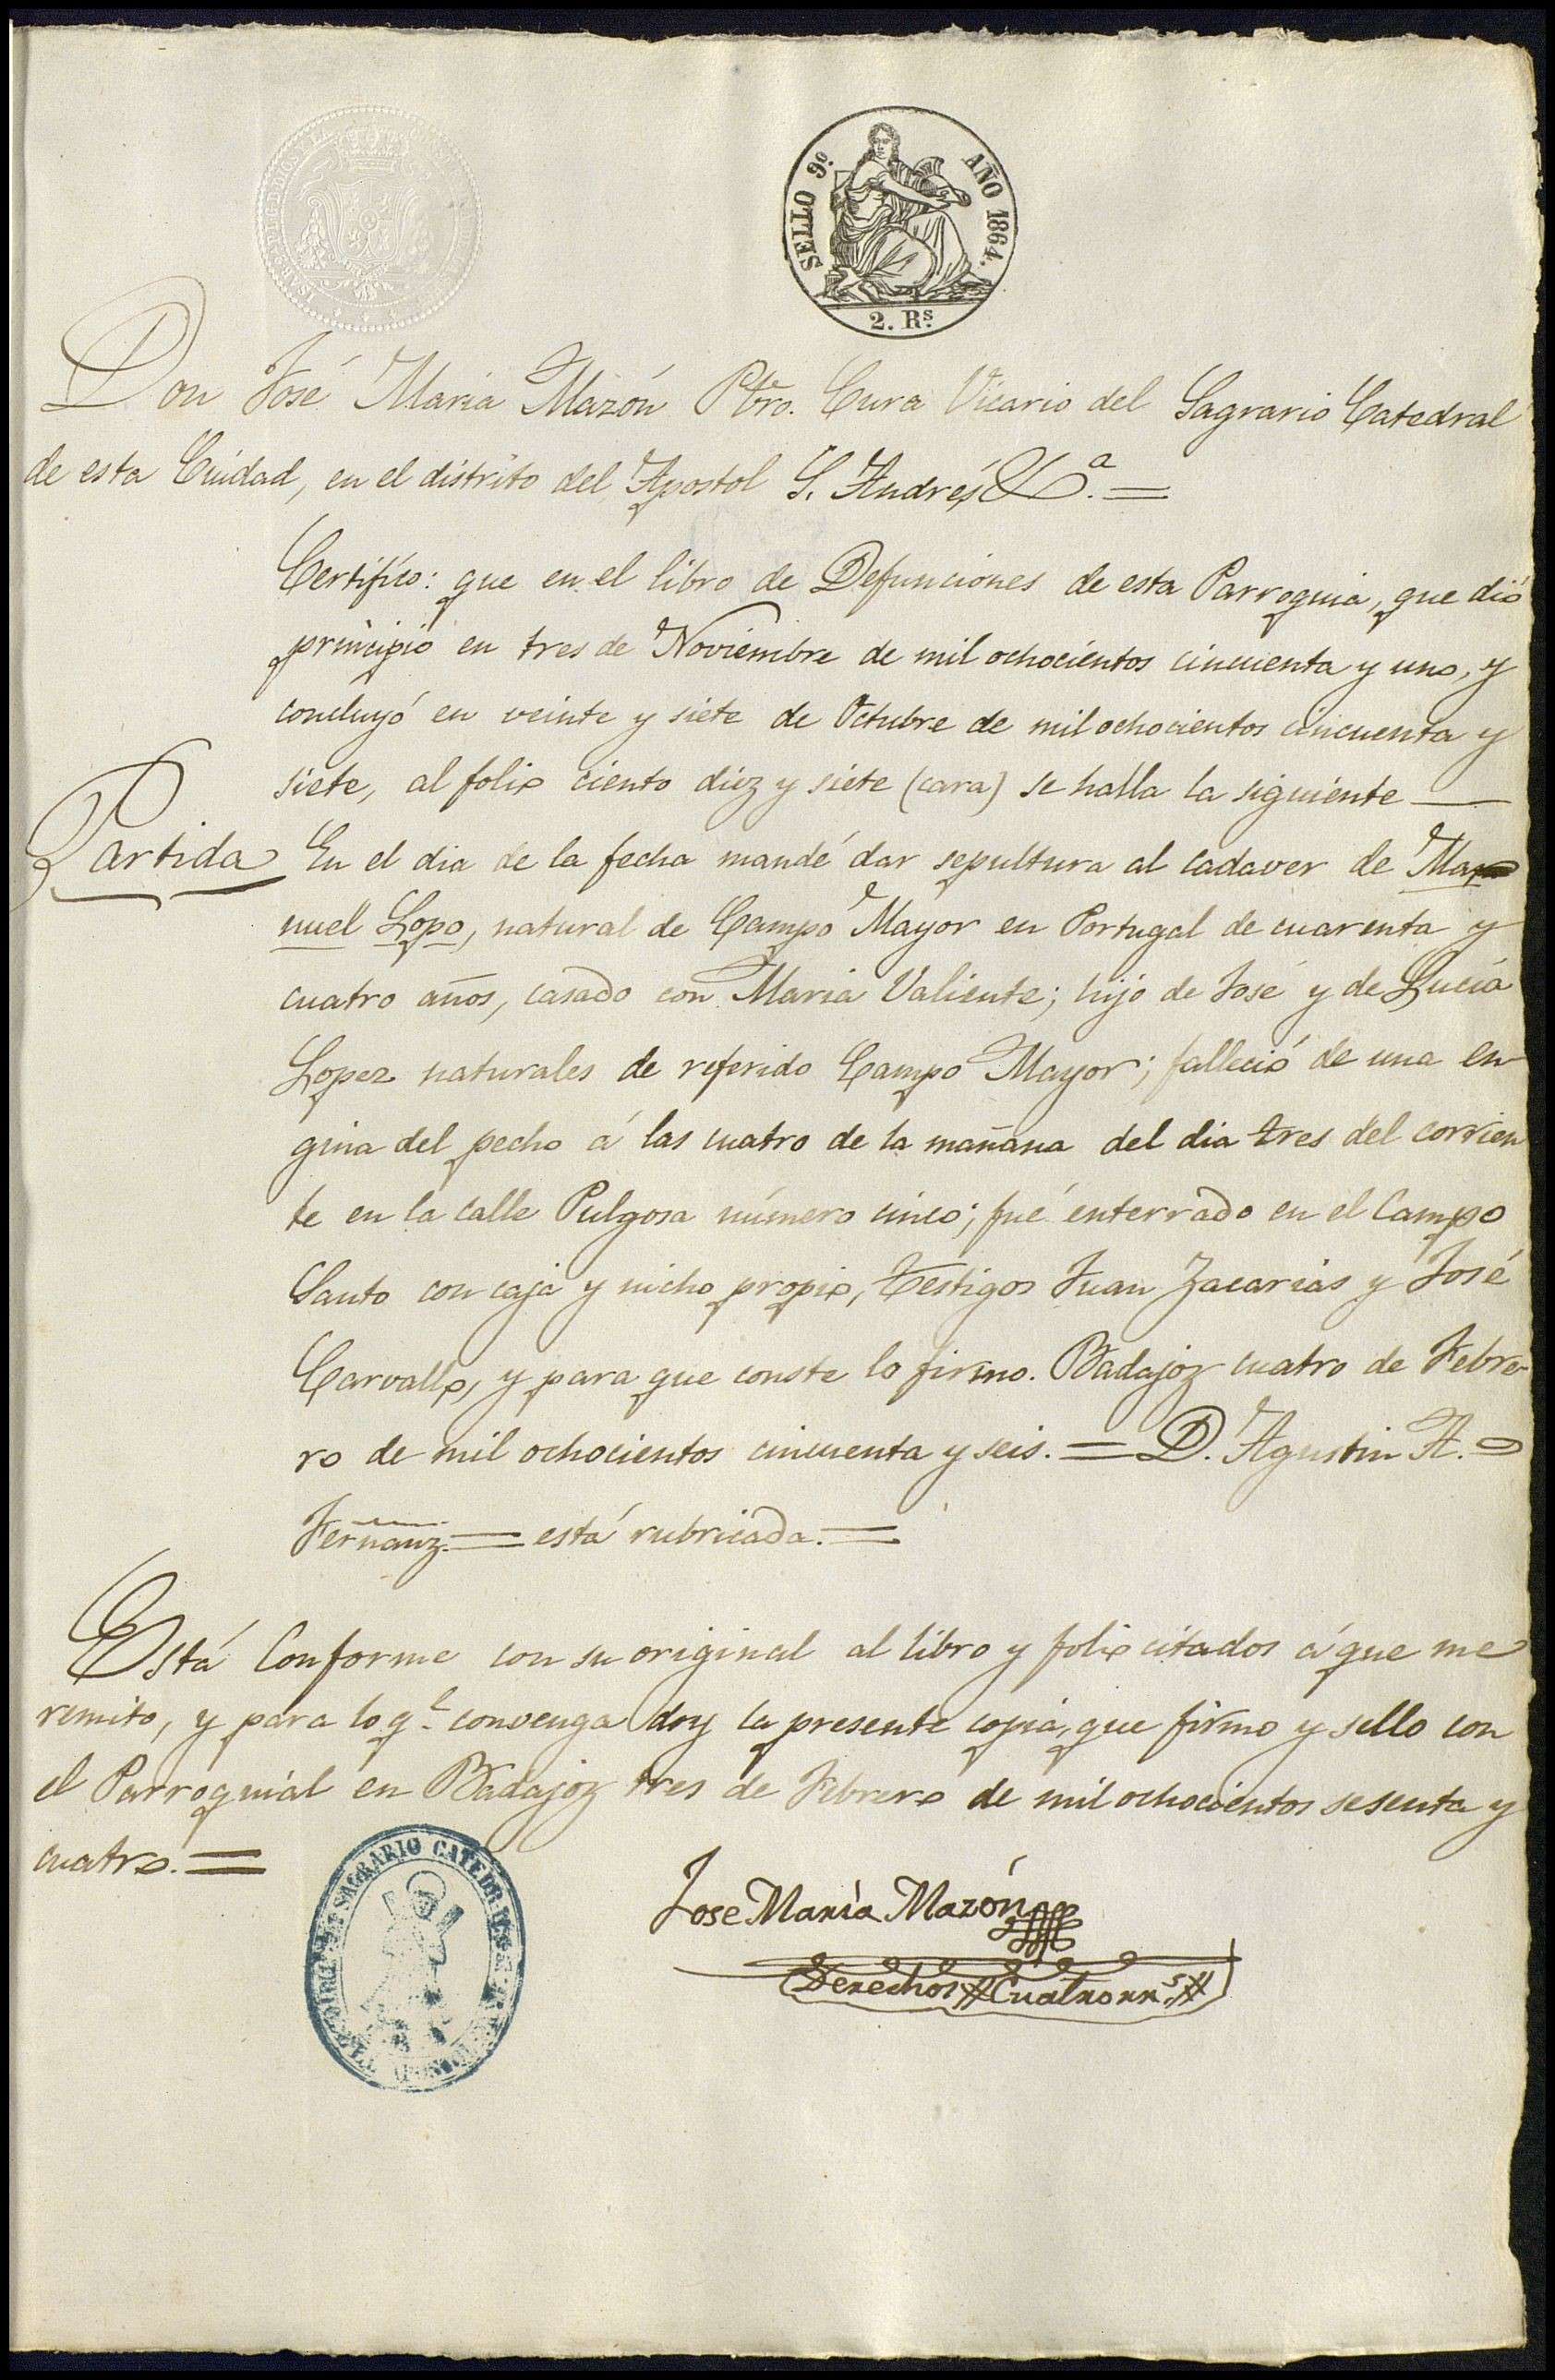 SELLO 9º. AÑO 1864.
2. Rs.
Don José Maria Mazón Pbro. Cura Vicario del Sagrario Catedral
de esta Ciudad, en el distrito del Apostol S. Andrés &ª. =
Certifico: que en el libro de Defunciones de esta Parroquia, que dió
principio en tres de Noviembre de mil ochocientos cincuenta y uno, y
concluyó en veinte y siete de Octubre de mil ochocientos cincuenta y
siete, al folio ciento diez y siete (cara) se halla la siguiente —
Partida En el dia de la fecha mandé dar sepultura al cadaver de Ma-
nuel Lopo, natural de Campo Mayor en Portugal de cuarenta y
cuatro años, casado con Maria Valiente; hijo de José y de Lucía
Lopez naturales de referido Campo Mayor; falleció de una en
gina del pecho á las cuatro de la mañana del dia tres del corrien
te en la calle Pulgosa número cinco; fué enterrado en el Campo
Santo con caja y nicho propio, Testigos Juan Zacarias y José
Carvallo, y para que conste lo firmo. Badajoz cuatro de Febre-
ro de mil ochocientos cincuenta y seis. = D. Agustin A. =
Fernanz. = está rubricada. =
Está Conforme con su original al libro y folio citados á que me
remito, y para lo q.e convenga doy la presente copia, que firmo y sello con
el Parroquial en Badajoz tres de Febrero de mil ochocientos sesenta y
cuatro. =
SAGRARIO CATEDRAL
Jose María Mazón
Derechos # Cuatro rr.s #